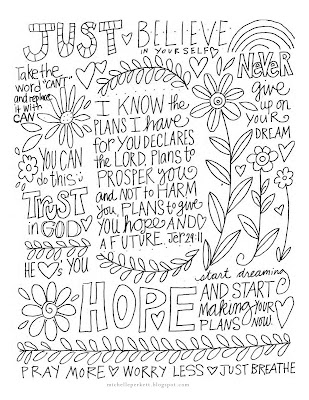 JUST BELIEVE
IN YOURSELF
Take the
word "CAN'T"
and replace
it with
CAN
NEVER
give
up on
your
DREAM
I KNOW the
PLANS I have
for YOU DECLARES
the LORD, Plans to
PROSPER you
and NOT to HARM
you, PLANS to give
YOU hope AND
A FUTURE. Jer 29:11
YOU CAN
do this
TRUST
in GOD
HE ♥s YOU
start dreaming
AND START
Making YOUR
PLANS NOW.
HOPE
PRAY MORE ♥ WORRY LESS ♥ JUST BREATHE
michelleperkett.blogspot.com